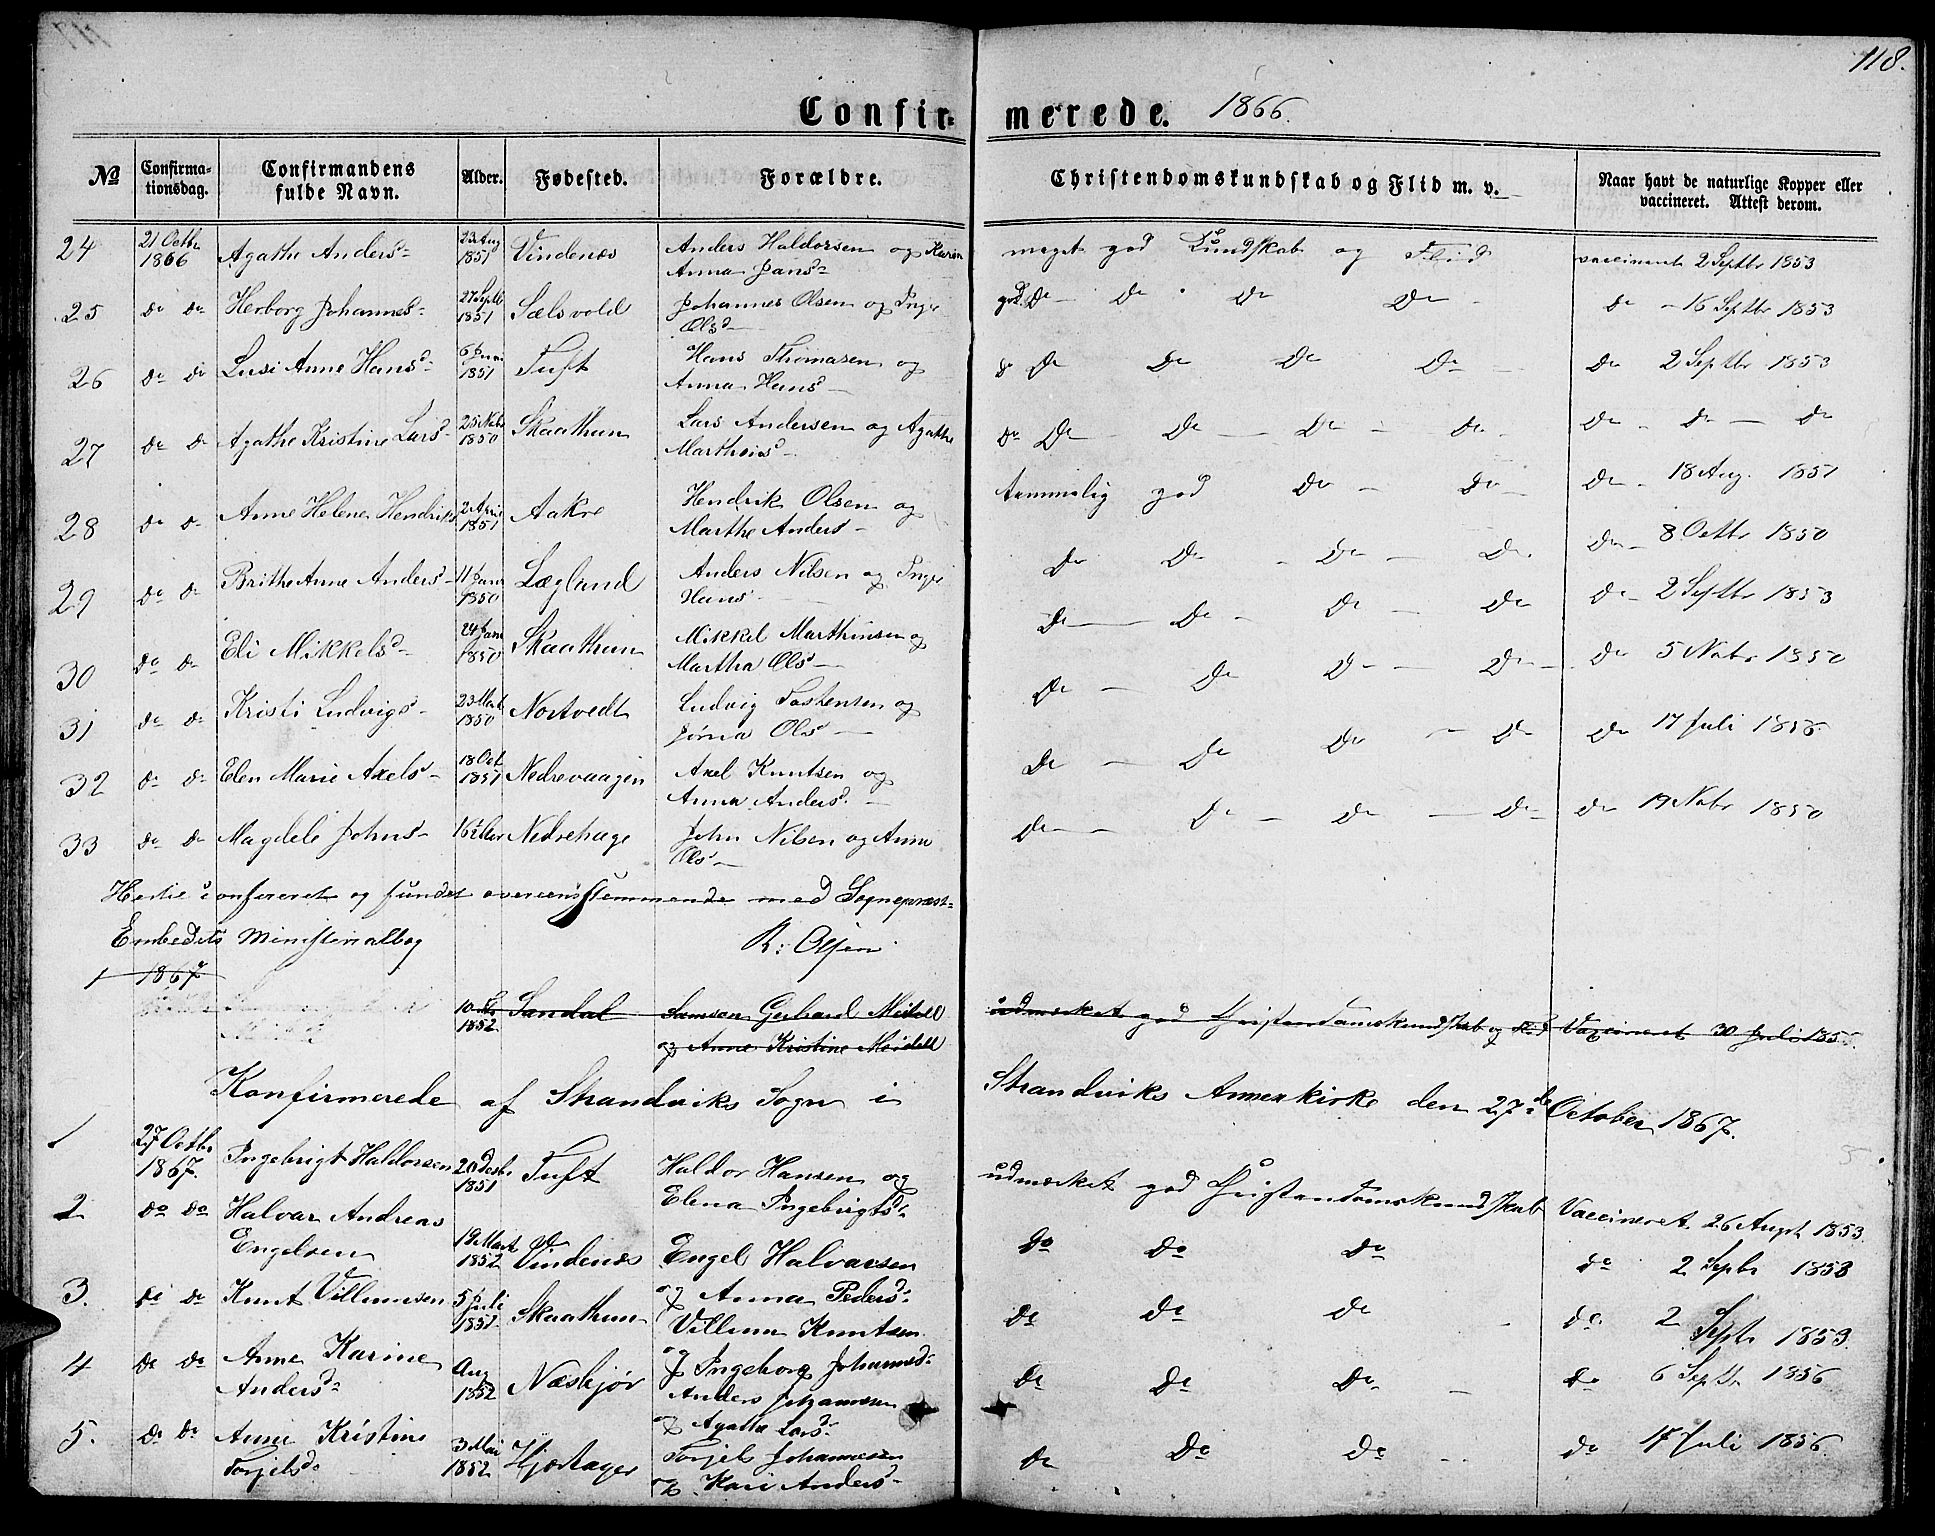 118.
Confirmerede. 1866.
No Confirmationsdag. Confirmandens fulde Navn. Alder. Fødested. Forældre. Christendomskundskab og Flid m. v. Naar havt de naturlige Kopper eller vaccineret. Attest derom.
24 21 Octbr 1866 Agathe Andersd- 23 Aug 1851 Vindenæs Anders Haldorsen og Karen Anna Jansd- meget god Kundskab og Flid vaccineret 2 Septbr 1853
25 do do Herborg Johannesd- 27 Septb 1851 Sælsvold Johannes Olsen og Inge Olsd- god do - do - do do - do - 16 Septbr 1853
26 do do Lusi Anne Hansd- 6 1851 Tuft Hans Thomasen og Anna Hansd- do do do do do 2 Septbr 1853
27 do do Agathe Kristine Larsd- 25 Nobr 1850 Skaathun Lars Andersen og Agathe Marthinsd- do do do do do do - do - do
28 do do Anne Helene Hendriksd 2 April 1851 Aakre Hendrik Olsen og Marthe Andersd- temmelig god do - do - do - 18 Aug. 1851
29 do do Brithe Anne Andersd- 11 Janr 1850 Lægland Anders Nilsen og Inge Hansd- do do - do - do do - 8 Octbr 1850
30 do do Eli Mikkelsd- 24 Janr 1850 Skaathun Mikkel Marthinsen og Martha Olsd- do - do - do - do do - 2 Septbr 1853
31 do do Kristi Ludvigsd- 23 Mart 1850 Nortvedt Ludvig Tostensen og Jorna Olsd- do - do do - do - do 5 Nobr 1850
32 do do Elen Marie Axelsd- 18 Oct 1851 Nedrevaagen Axel Knutsen og Anna Andersd- do - do do - do do 17 Juli 1856
33 do do Magdeli Johnsd- 16½ Aar Nedrehage John Nilsen og Anna Olsd- do - do - do - do - do 19 Nobr 1850
Hertil confereret og fundet overensstemmende med Sognepræst-
Embedets Ministerialbog R: Olsen
1 1867
10 1852 Sandal Samson Gerhard Meidell udmærket god Christendomskundskab og Flid Vaccineret 30 Juli 185
og Anne Kristine Meidell
Konfirmerede af Strandviks Sogn i Strandviks Annexkirke den 27de October 1867.
1 27 Octbr 1867. Ingebrigt Haldorsen 20 Decbr. 1851 Tuft Haldor Hansen og Elena Ingebrigtsd- udmærket god Christendomskundskab Vaccineret 26 Augt 1853.
2 do do Halvar Andreas Engelsen 19 Mart 1852 Vindenæs Engel Halvarsen og Anna Pedersd- do do do do 2 Septbr 1853
3. do do Knut Villumsen 5 Juli 1851 Skaathun Villum Knutsen og Ingeborg Johannesd- do do do do 2 Septr 1853.
4 do do Anne Karine Andersd- Aug 1852 Næskjør Anders Johannesen og Agatha Larsd- do do do - do 6 Septbr 1856
5. do do Anne Kristine Torjelsd- 3 Mai 1852 Hjortager Torjels Johannesen og Kari Andersd- do do do do 17 Juli 1856.